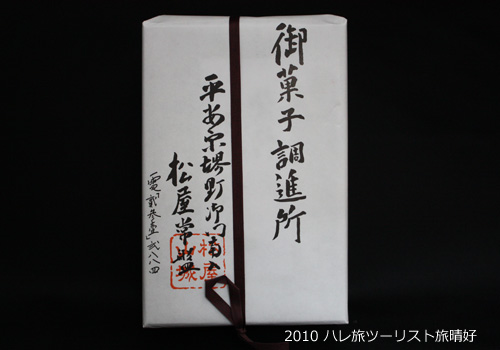 御菓子調進所
平安京堺町御門前
松屋常盤
電話弐参壱弐八八四
2010 ハレ旅ツーリスト旅晴好